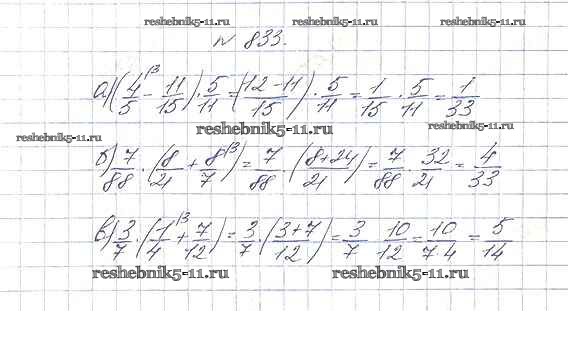 reshebnik5-11.ru reshebnik5-11.ru reshebnik5-11.ru
№ 833.
а) (4/5 ⁽³ - 11/15) · 5/11 = (12-11)/15) · 5/11 = 1/15 · 5/11 = 1/33
reshebnik5-11.ru reshebnik5-11.ru reshebnik5-11.ru
б) 7/88 · (8/21 + 8/7 ⁽³) = 7/88 · (8+24/21) = 7/88 · 32/21 = 4/33
в) 3/7 · (1/4 ⁽³ + 7/12) = 3/7 · (3+7/12) = 3/7 · 10/12 = 10/7·4 = 5/14
reshebnik5-11.ru reshebnik5-11.ru